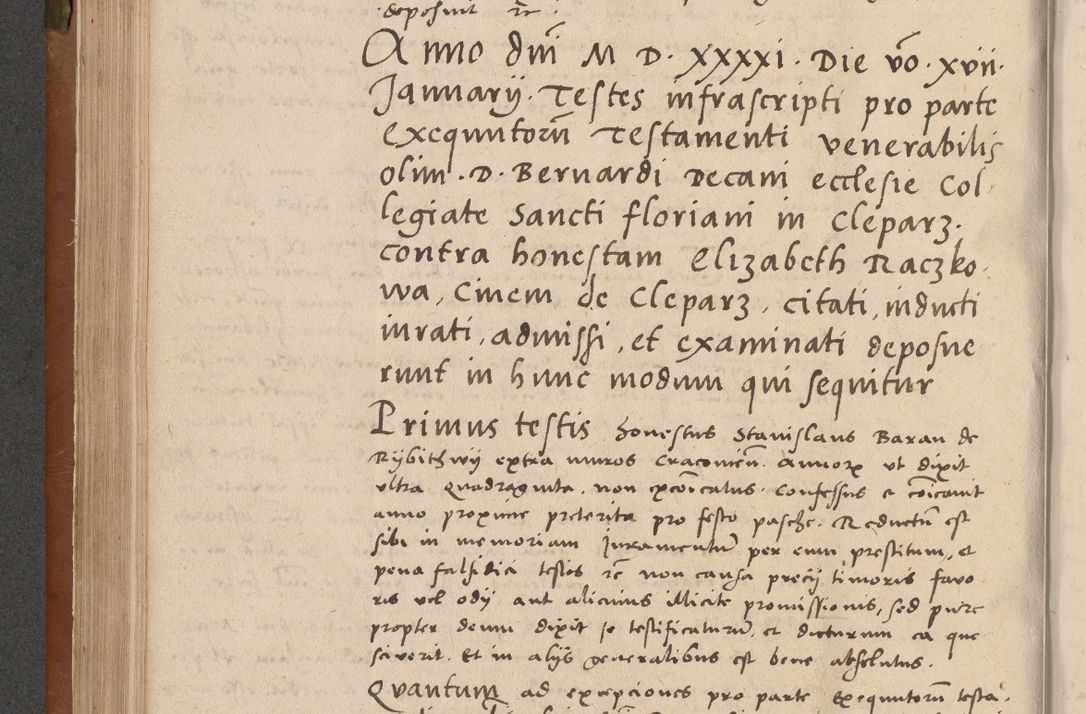 deposuit etc.
Anno dni M D. XXXXI. Die vo. xvii.
Januarij. Testes infrascripti pro parte
Exequutorū Testamenti venerabilis
olim. D. Bernardi Decani ecclesie Col
legiate Sancti floriani in Cleparz.
contra honestam Elizabeth Raczko
wa, Civem de Cleparz, citati, inducti
iurati, admissi, et examinati deposue
runt in hunc modum qui sequitur
Primus testis honestus Stanislaus Baran de
Rybithwy extra muros Cracovien. annorꝝ ut dixit
ultra quadraginta. non excōicatus. Confessus et cōicavit
anno proxime preterita pro festo pasche. Reductū est
sibi in memoriam Juramentum per eum prestitum, et
pena falsidici testis etc non causa precij timoris favo
ris vel odij aut alicuius illicite promissionis, sed pure
propter deum dixit se testificaturū et dicturum ea que
sciverit. Et in alijs generalibus est bene absolutus.
Quantum ad excepciones pro parte Exequutorū testa